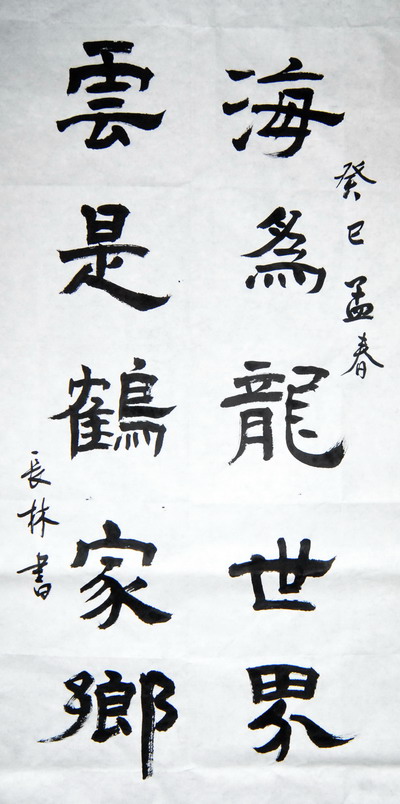 癸巳孟春
海為龍世界
雲是鶴家鄉
長林書